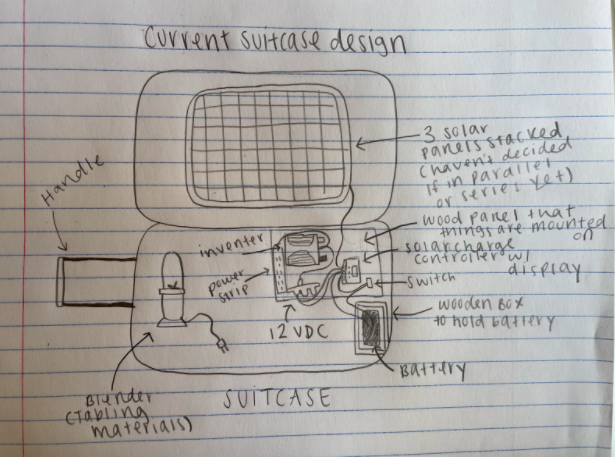 Current suitcase design
3 solar
panels stacked
(haven't decided
if in parallel
or series yet)
Handle
wood panel that
things are mounted
on
inventer
solar charge
controller w/
display
power
strip
switch
wooden box
to hold battery
12 VDC
Battery
Blender
(tabling
materials)
SUITCASE